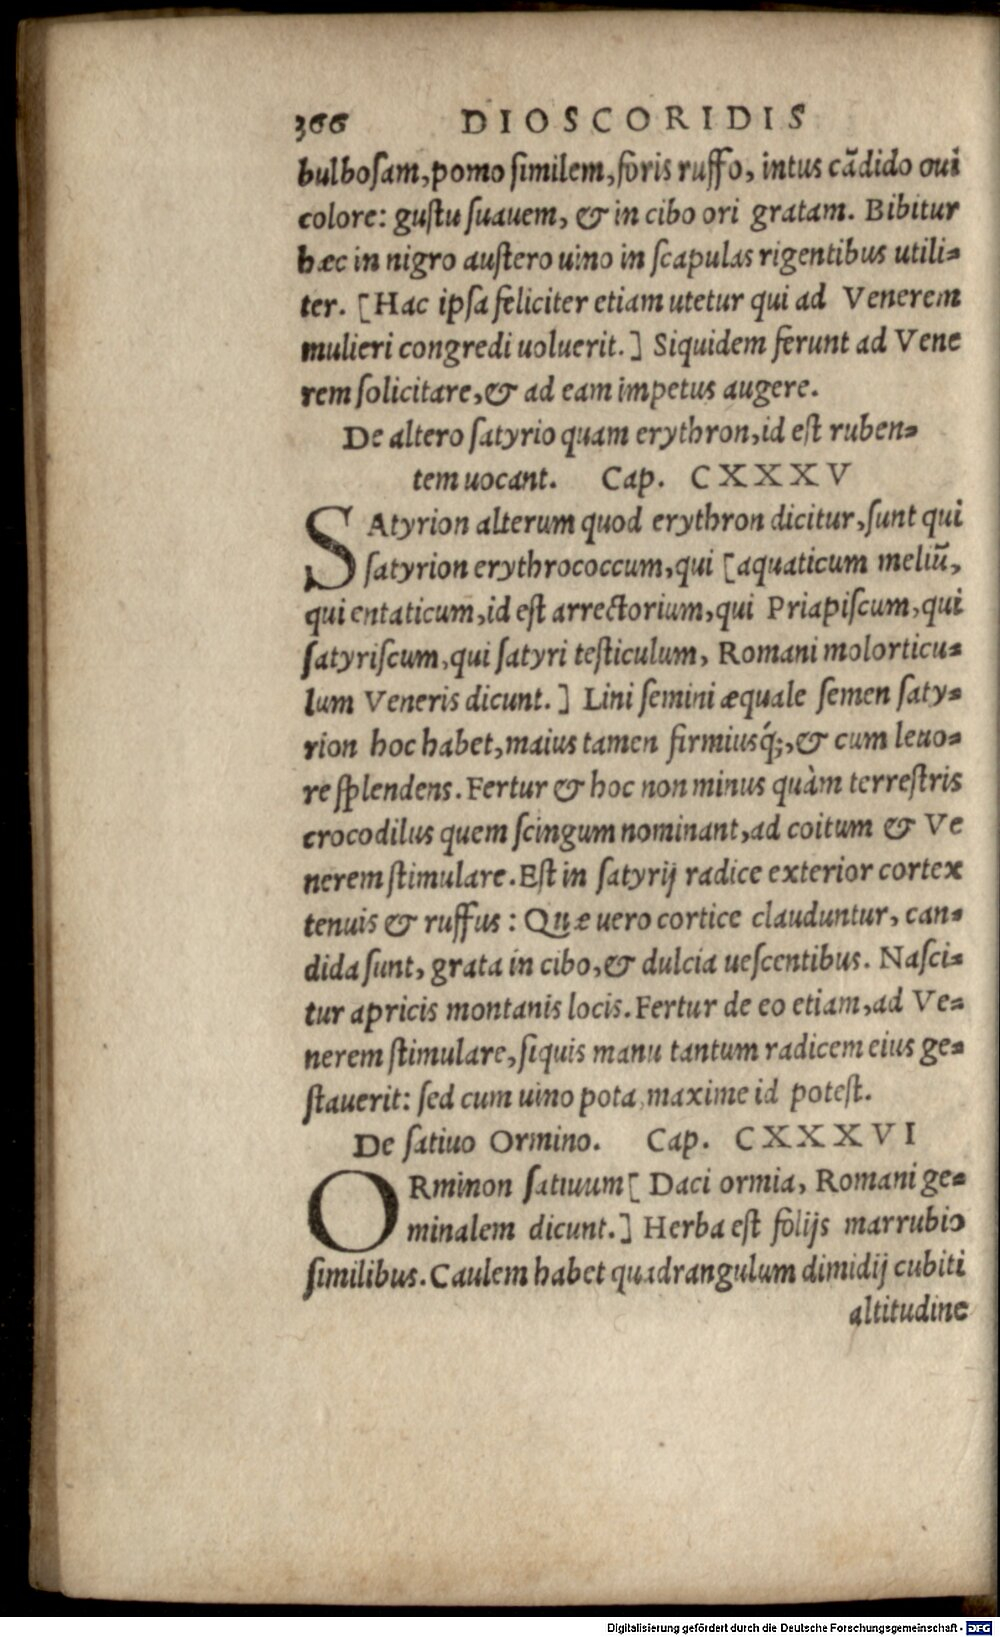 366 DIOSCORIDIS
bulbosam, pomo similem, foris ruffo, intus cãdido oui
colore: gustu suauem, & in cibo ori gratam. Bibitur
hæc in nigro austero uino in scapulas rigentibus utili-
ter. [Hac ipsa feliciter etiam utetur qui ad Venerem
mulieri congredi uoluerit.] Siquidem ferunt ad Vene
rem solicitare, & ad eam impetus augere.
De altero satyrio quam erythron, id est ruben-
tem uocant. Cap. CXXXV
SAtyrion alterum quod erythron dicitur, sunt qui
satyrion erythrococcum, qui [aquaticum meliũ,
qui entaticum, id est arrectorium, qui Priapiscum, qui
satyriscum, qui satyri testiculum, Romani molorticu-
lum Veneris dicunt.] Lini semini æquale semen saty-
rion hoc habet, maius tamen firmiusq́;, & cum leuo-
re splendens. Fertur & hoc non minus quàm terrestris
crocodilus quem scingum nominant, ad coitum & Ve
nerem stimulare. Est in satyrij radice exterior cortex
tenuis & ruffus: Quæ uero cortice clauduntur, can-
dida sunt, grata in cibo, & dulcia uescentibus. Nasci-
tur apricis montanis locis. Fertur de eo etiam, ad Ve-
nerem stimulare, siquis manu tantum radicem eius ge-
stauerit: sed cum uino pota, maxime id potest.
De satiuo Ormino. Cap. CXXXVI
ORminon satiuum [Daci ormia, Romani ge-
minalem dicunt.] Herba est folijs marrubio
similibus. Caulem habet quadrangulum dimidij cubiti
altitudine
Digitalisierung gefördert durch die Deutsche Forschungsgemeinschaft - DFG